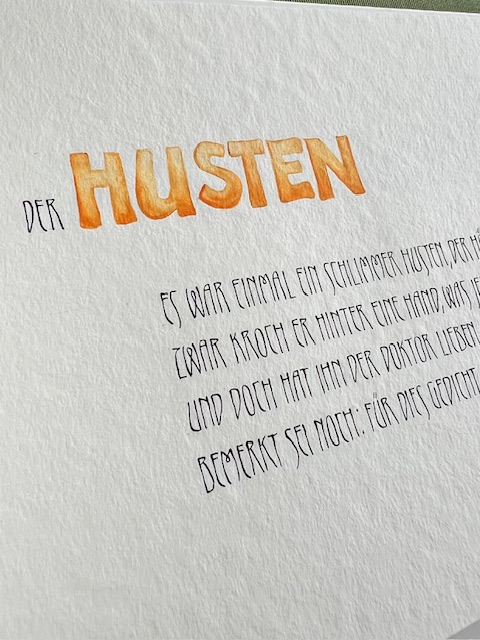 DER HUSTEN
ES WAR EINMAL EIN SCHLIMMER HUSTEN, DER
ZWAR KROCH ER HINTER EINE HAND, WAS
UND DOCH HAT IHN DER DOKTOR LIEBEN
BEMERKT SEI NOCH: FÜR DIES GEDICHT